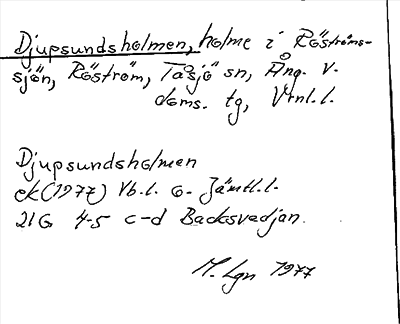 Djupsundsholmen, holme i Röströms-
sjön, Röström, Tåsjö sn, Ång. v.
doms. tg, Vrnl.l.
Djupsundsholmen
ek(1977) Vb.l. o. Jämtl.l.
21G 4-5 c-d Backsvedjan.
M. Lgn 1977